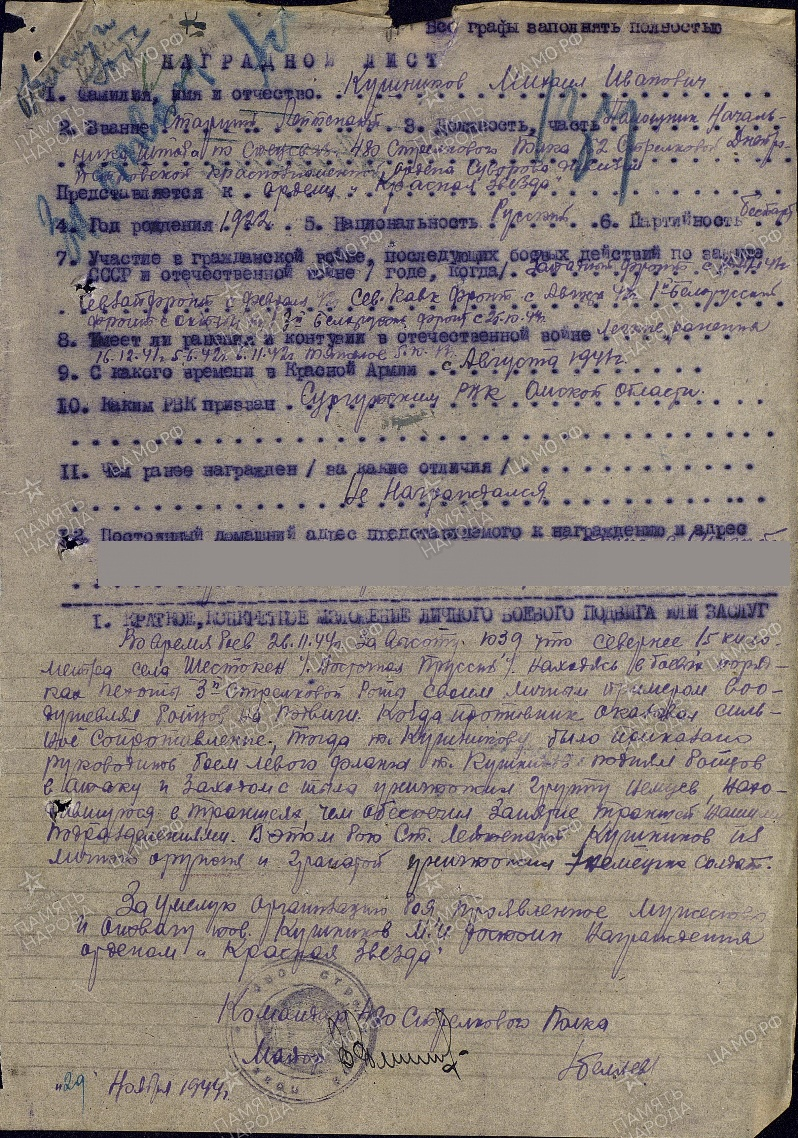 Все графы заполнять полностью
НАГРАДНОЙ ЛИСТ
1. Фамилия, имя и отчество. Кушников Михаил Иванович
2. Звание Старший Лейтенант 3. Должность, часть Помощник Началь-
ника штаба по 480 Стрелкового Полка Стрелковой
Краснознаменной ордена Суворова дивизии
Представляется к ордену "Красная Звезда"
4. Год рождения 1922. 5. Национальность Русский. 6. Партийность
7. Участие в гражданской войне, последующих боевых действий по защите
СССР и отечественной войне / годе, когда/. Западный фронт с
фронт с февраля Сев. Кавк Фронт с Августа 42г 1й Белорусский
фронт с 3й Белорусский фронт с 25.10.44г.
8. Имеет ли ранения и контузии в отечественной войне легкие ранения
16.12.41г. 5.6.42г. 6.11.42г
9. С какого времени в Красной Армии. с Августа 1941г.
10. Каким РВК призван. Сургутским РВК Омской Области.
11. Чем ранее награжден / за какие отличия /
Не Награждался
12. Постоянный домашний адрес представляемого к награждению и адрес
I. КРАТКОЕ, КОНКРЕТНОЕ ИЗЛОЖЕНИЕ ЛИЧНОГО БОЕВОГО ПОДВИГА ИЛИ ЗАСЛУГ
Во время боев 26.11.44г. За высоту что севернее 1,5 кило-
метра села /Восточная Пруссия/. Находясь в боевых поряд-
ках пехоты 3й Стрелковой Роты своим личным примером воо-
душевлял бойцов на подвиги. Когда противник оказывал силь-
ное сопротивление, тогда т. Кушникову было приказано
руководить боем левого фланга т. Кушников поднял бойцов
в атаку и заходом с тыла уничтожил группу немцев, нахо-
дившуюся в траншеях, чем обеспечил занятие траншей нашими
подразделениями. В этом бою Ст. Лейтенант Кушников из
личного оружия и гранатой уничтожил 7 немецких солдат.
За умелую организацию боя проявленное мужество
и отвагу тов. Кушников М.И достоин награждения
орденом "Красная Звезда"
Командир 480 Стрелкового Полка
Майор
"29" Ноября 1944г.
ПАМЯТЬ НАРОДА
ЦАМО.РФ